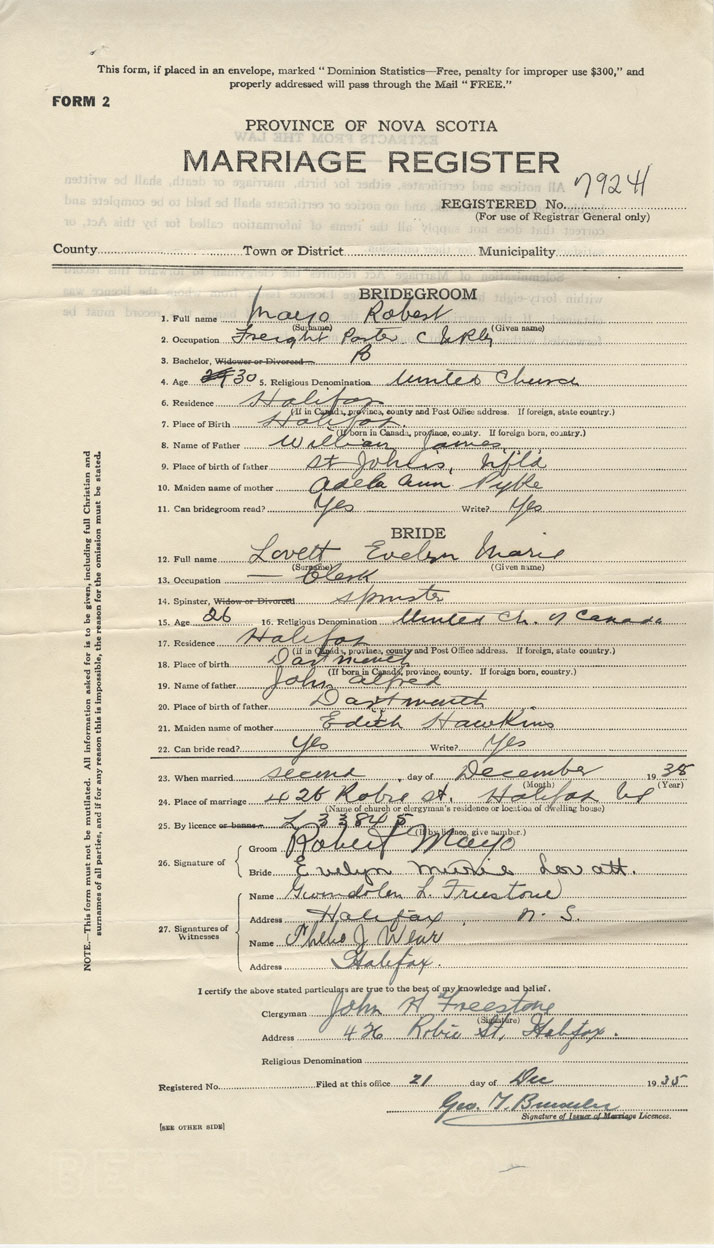 This form, if placed in an envelope, marked "Dominion Statistics—Free, penalty for improper use $300," and
properly addressed will pass through the Mail "FREE."
FORM 2
PROVINCE OF NOVA SCOTIA
MARRIAGE REGISTER
REGISTERED No. 7924
(For use of Registrar General only)
County Town or District Municipality
BRIDEGROOM
1. Full name Mayo Robert
(Surname) (Given name)
2. Occupation Freight Porter C N Rly
3. Bachelor, Widower or Divorced B
4. Age 30 5. Religious Denomination United Church
6. Residence Halifax
(If in Canada, province, county and Post Office address. If foreign, state country.)
7. Place of Birth Halifax.
(If born in Canada, province, county. If foreign born, country.)
8. Name of Father William James
9. Place of birth of father St John's, Nfld
10. Maiden name of mother Adela Ann Pyke
11. Can bridegroom read? Yes Write? Yes
BRIDE
12. Full name Lovett Evelyn Marie
(Surname) (Given name)
13. Occupation — Clerk
14. Spinster, Widow or Divorced spinster
15. Age 26 16. Religious Denomination United Ch. of Canada
17. Residence Halifax
(If in Canada, province, county and Post Office address. If foreign, state country.)
18. Place of birth Dartmouth
(If born in Canada, province, county. If foreign born, country.)
19. Name of father John Alfred
20. Place of birth of father Dartmouth
21. Maiden name of mother Edith Hawkins
22. Can bride read? Yes Write? Yes
23. When married second, day of December 1935
(Month) (Year)
24. Place of marriage 426 Robie St. Halifax
(Name of church or clergyman's residence or location of dwelling house)
25. By licence or banns L 33845
(If by licence, give number.)
26. Signature of
Groom Robert Mayo
Bride Evelyn Marie Lovett.
27. Signatures of Witnesses
Name Gwendolen L. Freestone
Address Halifax, N. S.
Name J Wear
Address Halifax.
I certify the above stated particulars are true to the best of my knowledge and belief.
Clergyman John H Freestone
(Signature)
Address 426 Robie St, Halifax.
Religious Denomination
Registered No. Filed at this office 21 day of Dec 1935
Geo.
Signature of Issuer of Marriage Licences.
[SEE OTHER SIDE]
NOTE.—This form must not be mutilated. All information asked for is to be given, including full Christian and
surnames of all parties, and if for any reason this is impossible, the reason for the omission must be stated.